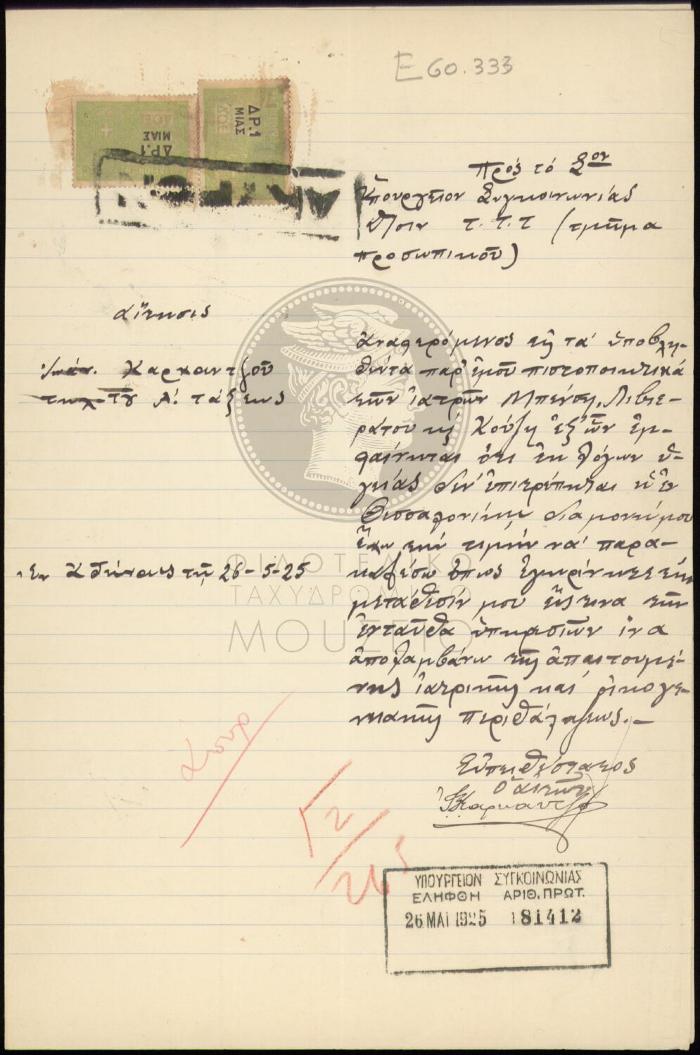 E 60.333
ΔΡ.1
ΜΙΑΣ
ΔΡ.1
ΜΙΑΣ
Πρός τό Σον
Ὑπουργεῖον Συγκοινωνίας
Δ)σιν Τ.Τ.Τ (τμῆμα
προσωπικοῦ)
αἴτησις
Ἰωάν. Καρκαντζοῦ
τηλ)τοῦ Α΄. τάξεως
Ἐν Ἀθήναις τῇ 26-5-25
Ἀναφερόμενος εἰς τά ὑποβλη-
θέντα παρ' ἐμοῦ πιστοποιητικά
τῶν ἰατρῶν Μπένση, Λιβιε-
ράτου κ Κούζη ἐξ ὧν ἐμ-
φαίνεται ὅτι ἐκ λόγων ὑ-
γείας δέν ἐπιτρέπεται ἡ ἐν
Θεσσαλονίκη διαμονή μου
ἔχω τήν τιμήν νά παρα-
καλέσω ὅπως ἐγκρίνητε τήν
μετάθεσίν μου εἴς τινα τῶν
ἐνταῦθα ὑπηρεσιῶν ἵνα
ἀπολαμβάνω τῆς ἀπαιτουμέ-
νης ἰατρικῆς καί οἰκογε-
νειακῆς περιθάλψεως.-
Εὐπειθέστατος
Ὁ αἰτῶν
Ἰ Καρκαντζο
Γ2
265
ΥΠΟΥΡΓΕΙΟΝ ΣΥΓΚΟΙΝΩΝΙΑΣ
ΕΛΗΦΘΗ ΑΡΙΘ. ΠΡΩΤ.
26 ΜΑΪ 1925 81412
ΦΙΛΟΤΕΛΙΚΟ
ΤΑΧΥΔΡΟΜΙΚΟ
ΜΟΥΣΕΙΟ